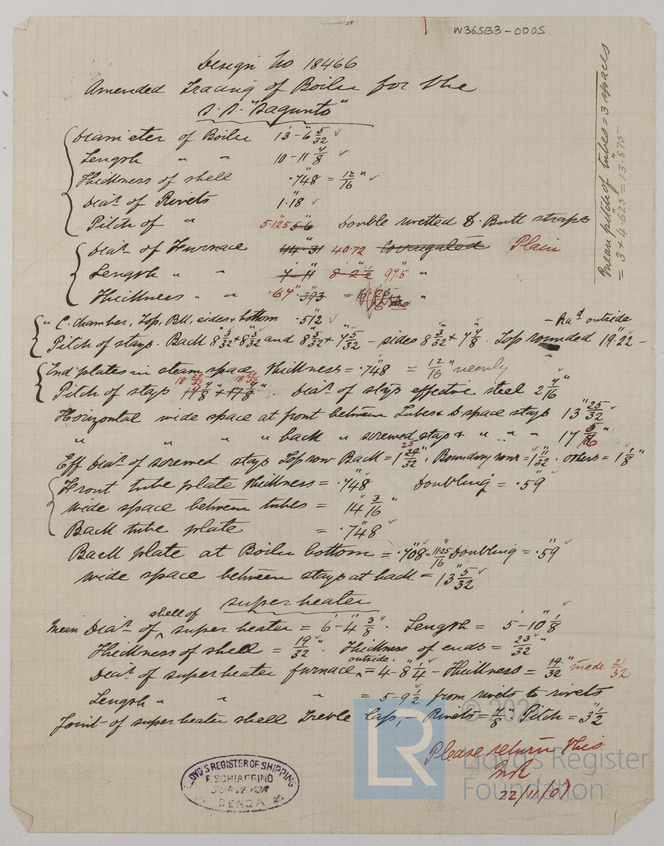 W365B3-0005
Design No 18466
Amended Tracing of Boiler for the
S.S. "Sagunto"
Diameter of Boiler 13'-6 5/32"
Length " " 10-11 7/8
Thickness of shell .748 = 12/16"
Dia^r. of Rivets 1.18"
Pitch of " 5.125 double rivetted D. Butt straps
Dia^r. of Furnace 40.72 Corrugated Plain
Length " "
Thickness " " .67"
" C. chamber, Top, Btt, sides & bottom .512"
Rad outside
Pitch of stays. Back 8 3/32 x 8 3/32 and 8 3/32 x 7 5/32 - sides 8 3/32 x 7 7/8. Top rounded 19"22 -
End plates in steam space Thickness = .748" = 12/16" nearly
Pitch of stays Dia^r. of stays effective steel 2 7/16"
Horizontal wide space at front between tubes & space stays 13 25/32"
" " " " back " screwed stays & " " " 17
Eff Dia^r. of screwed stays Top row Back = Boundary rows = others = 1 1/8"
Front tube plate thickness = .748" Doubling = .59"
Wide space between tubes = 14 3/16"
Back tube plate = .748"
Back plate at Boiler bottom = .708" Doubling = .59"
wide space between stays at back = 13 5/32"
Super heater
Mean Dia^r. of shell of super heater = 6'-4 3/8". Length = 5'-10 1/8"
Thickness of shell = 19/32". Thickness of ends = 23/32"
Dia^r. of super heater furnace outside = 4-8 1/4 - Thickness = 19/32" made
Length " " " = 5-9 1/2 from rivets to rivets
Joint of super heater shell Treble Lap, Rivets = 7/8" Pitch = 3 1/2"
Please return this
22/11/07
Mean pitch of tubes = 3 spaces
= 3 x 4.625 = 13.875
LLOYD'S REGISTER OF SHIPPING
F. SCHIAFFINO
SURVEYOR
GENOA
LR
© 2021
Lloyd's Register
Foundation